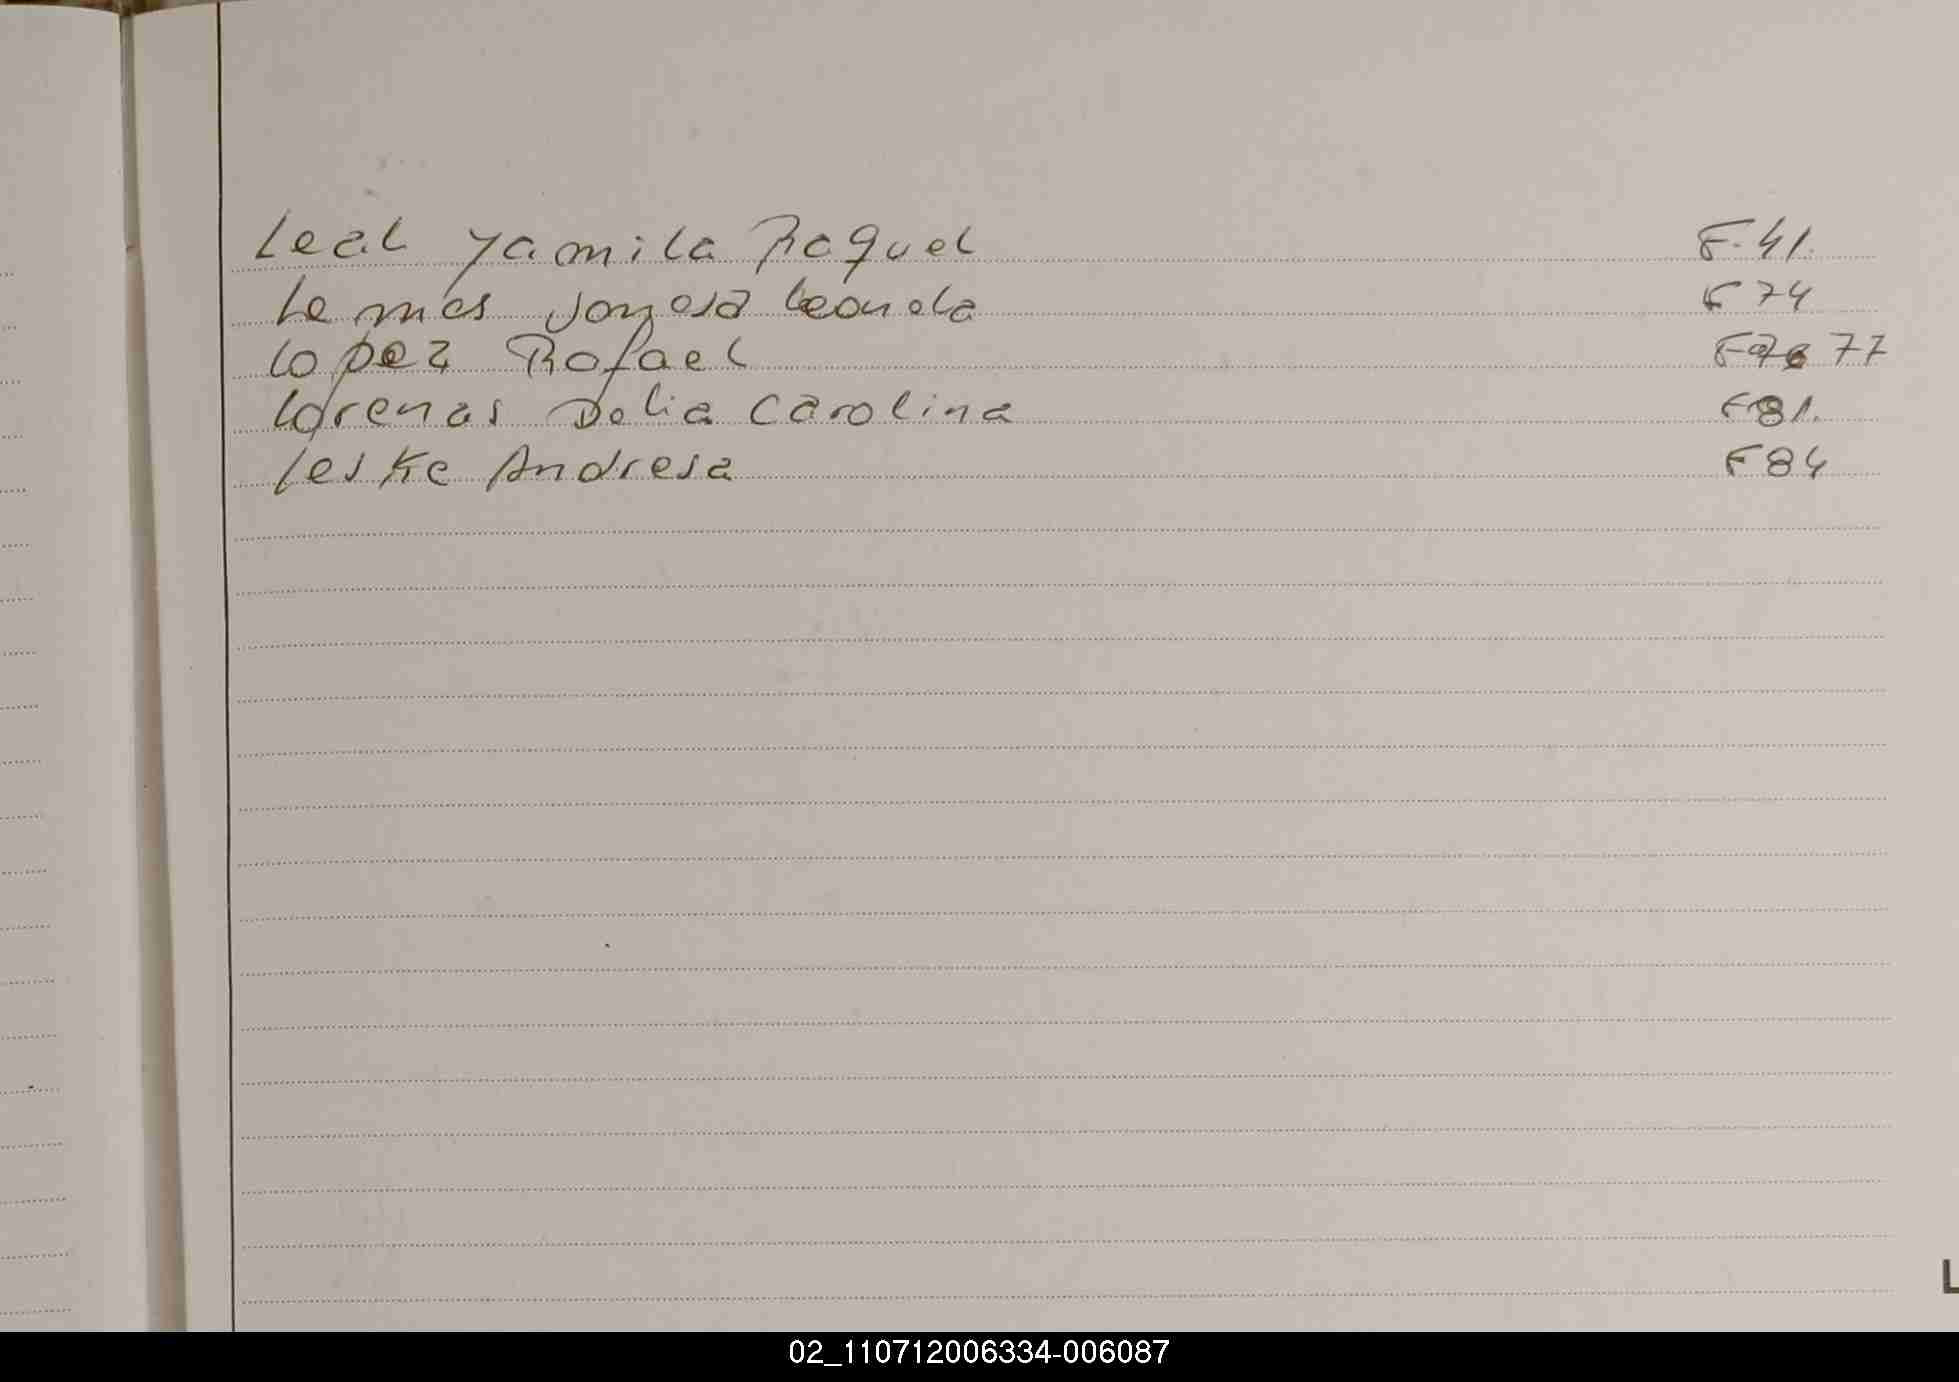 Leal Yamila Raquel F. 41.
Lemes Leonela F 74
Lopez Rafael 77
Lorenas Delia Carolina F 81.
Leske Andresa F 84
L
02_110712006334-006087